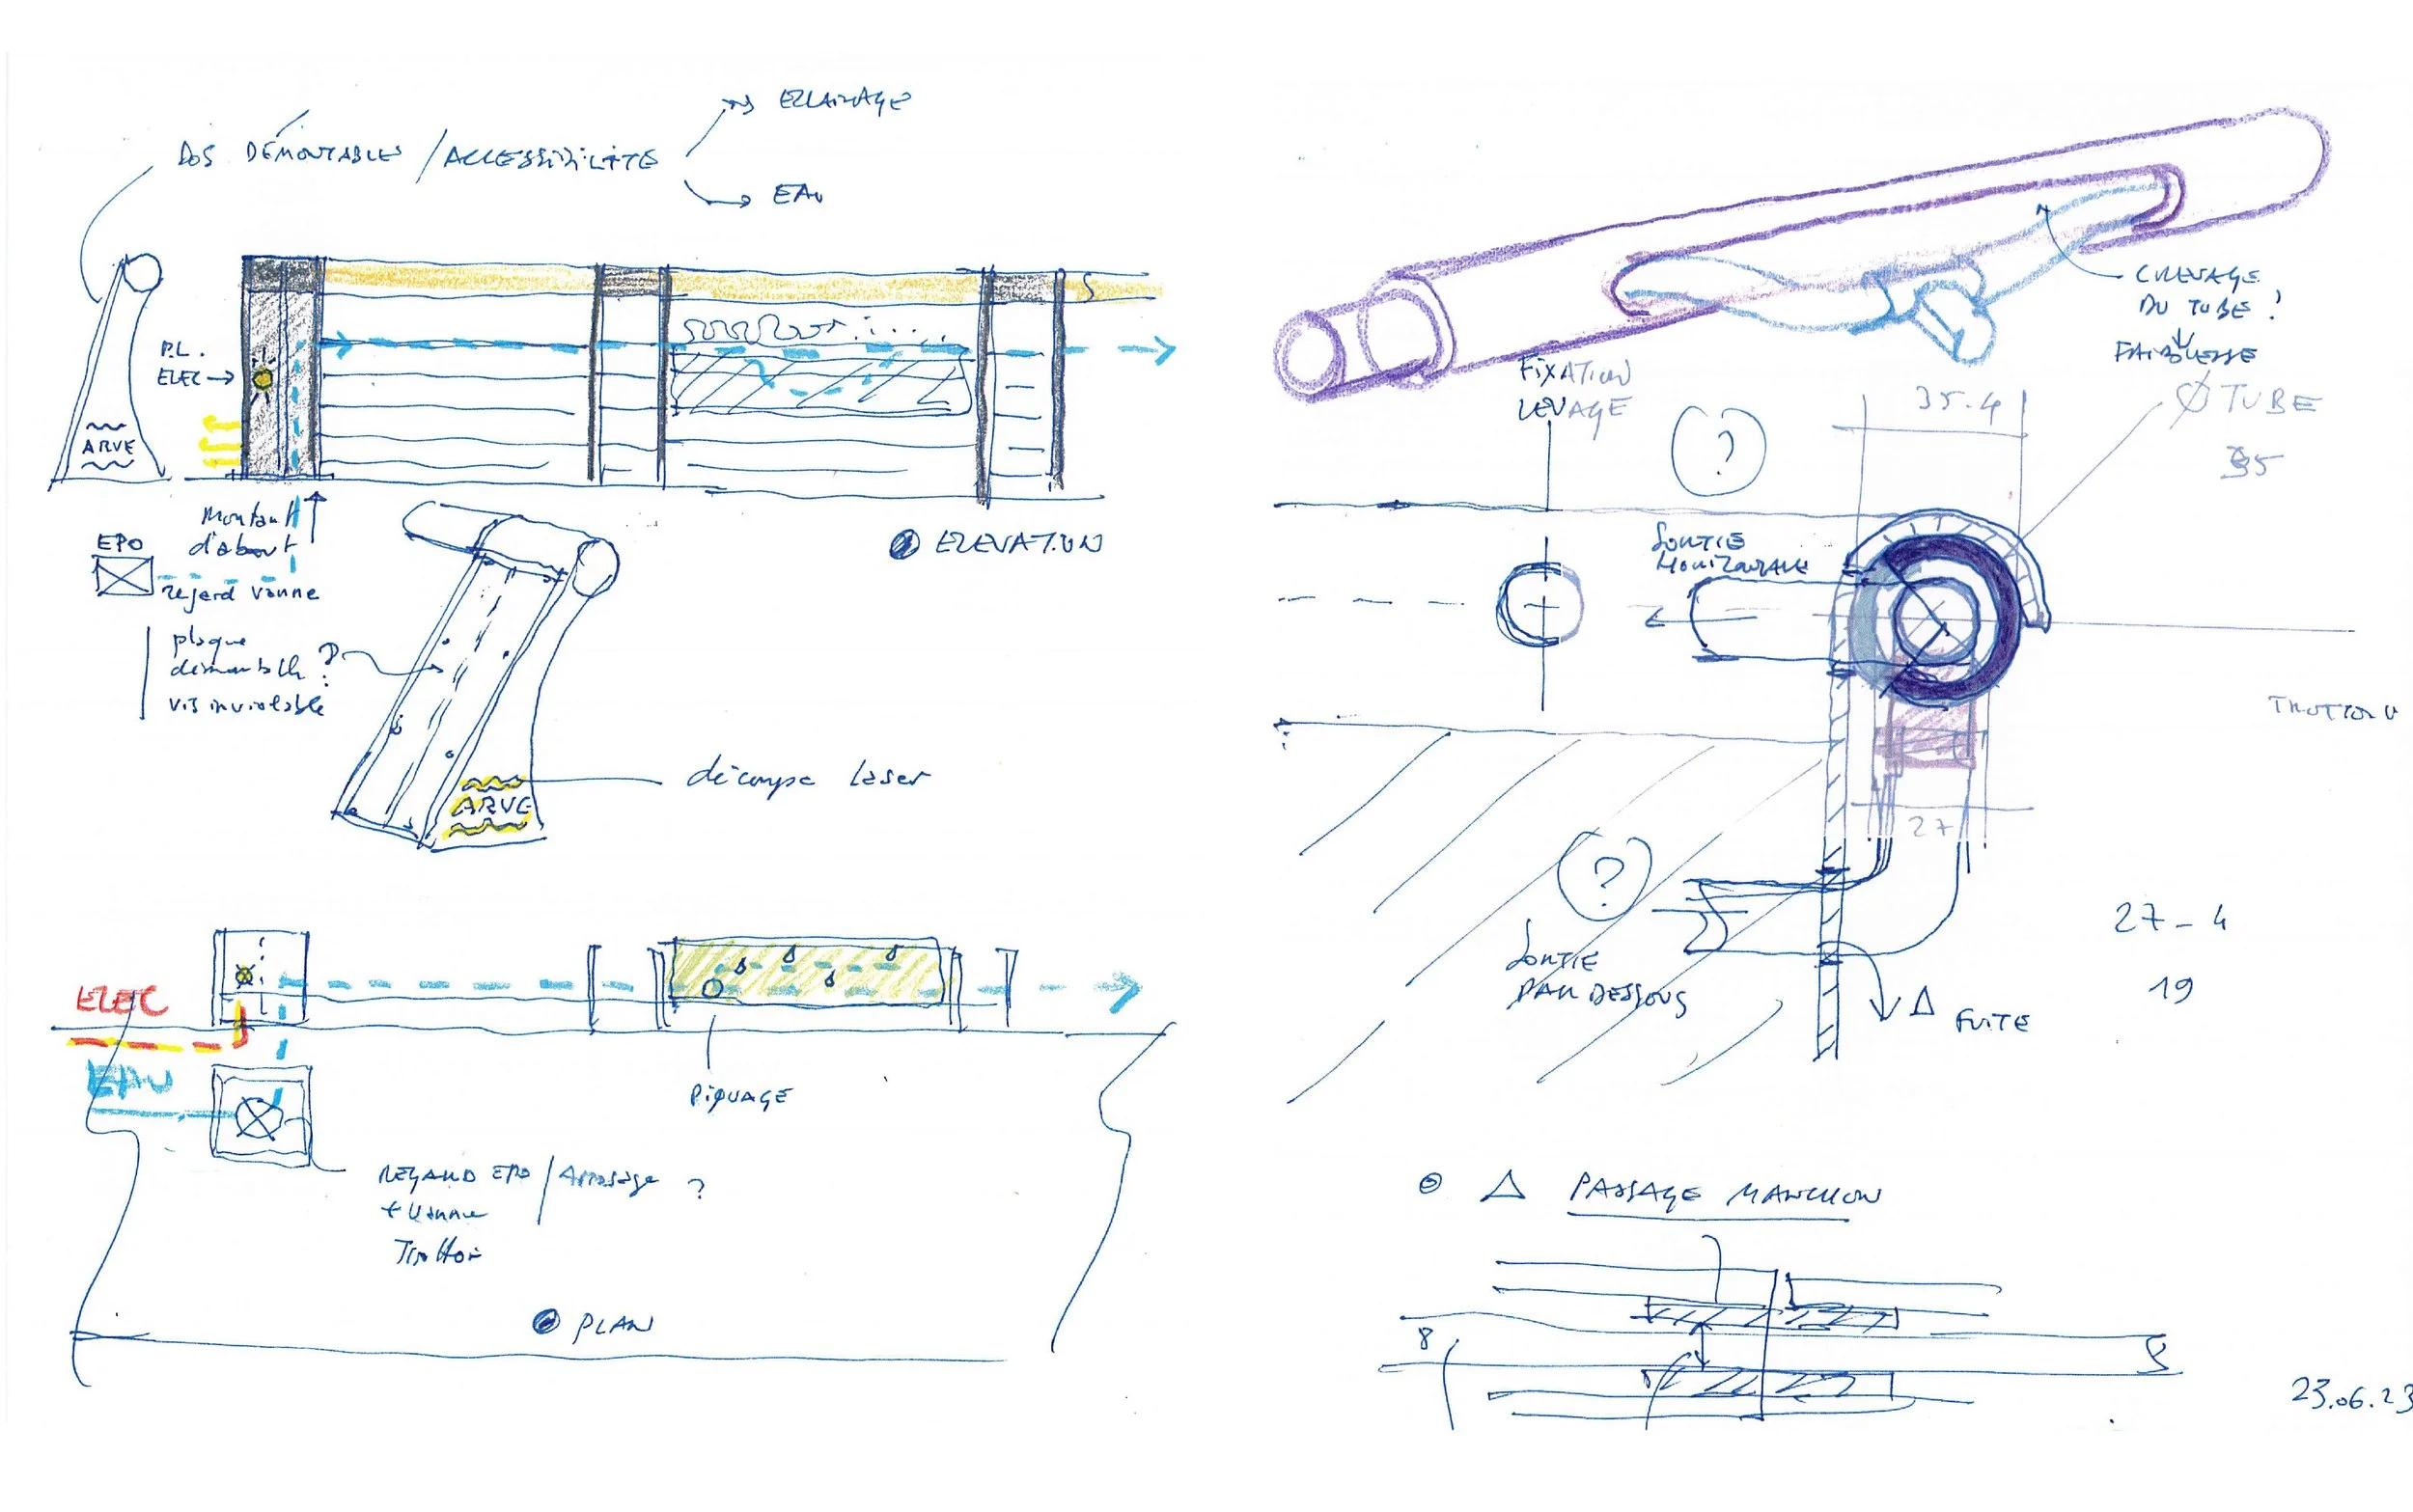 DOS DÉMONTABLES / ACCESSIBILITE
ECLAIRAGE
EAU
P.L.
ELEC
ARVE
EPO
Montant
d'about
regard vanne
plaque
démontable ?
vis inviolable
ELEVATION
ARVE
découpe laser
ELEC
EAU
PIQUAGE
REGARD EPO / Arrosage ?
+ Vanne
Trottoir
PLAN
CREVAGE
DU TUBE !
FAIBLESSE
FIXATION
LEVAGE
?
35.4
Ø TUBE
35
SORTIE
HORIZONTALE
TROTTOIR
27
?
SORTIE
PAR DESSOUS
Δ FUITE
27 - 4
19
Δ PASSAGE MANCHON
8
23.06.23